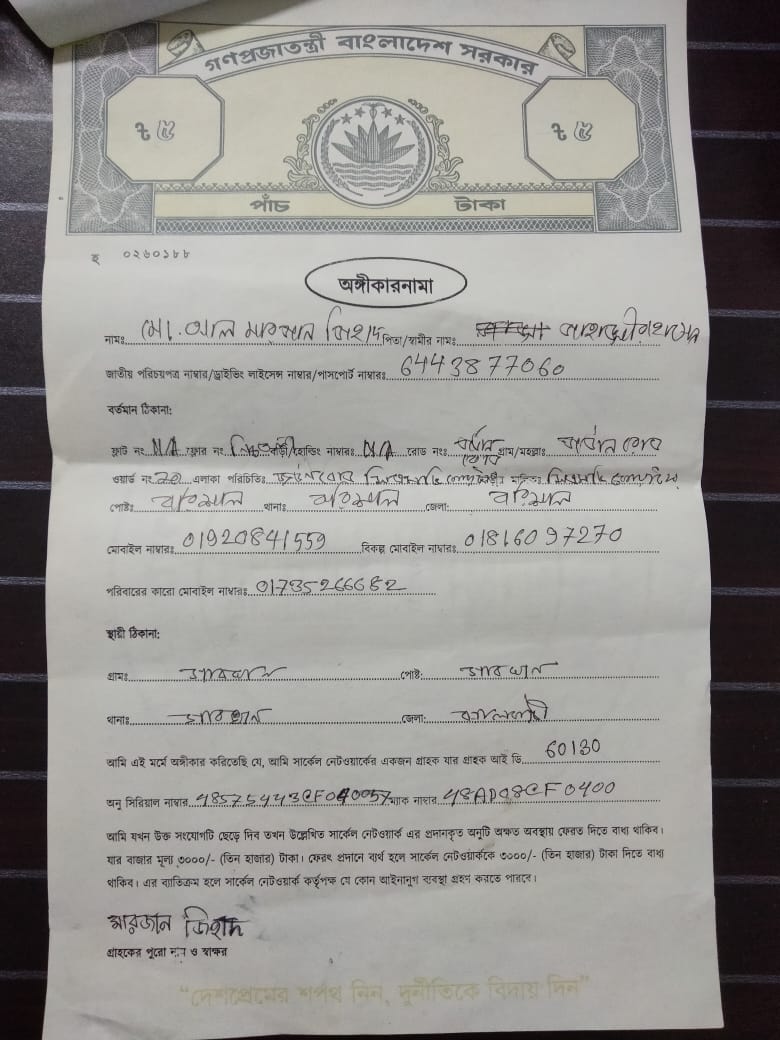 গণপ্রজাতন্ত্রী বাংলাদেশ সরকার
৳ ৫ ৳ ৫
পাঁচ টাকা
হ ০২৬০১৮৮
অঙ্গীকারনামা
নামঃ মো. আল মারজান জিহাদ পিতা/স্বামীর নামঃ
জাতীয় পরিচয়পত্র নাম্বার/ড্রাইভিং লাইসেন্স নাম্বার/পাসপোর্ট নাম্বারঃ 6443877060
বর্তমান ঠিকানা:
ফ্লাট নং N/A ফ্লোর নং বাড়ী/হোল্ডিং নাম্বারঃ N/A রোড নংঃ গ্রাম/মহল্লাঃ
ওয়ার্ড নং 20 এলাকা পরিচিতিঃ
পোষ্টঃ বরিশাল থানাঃ বরিশাল জেলা: বরিশাল
মোবাইল নাম্বারঃ 01920841559 বিকল্প মোবাইল নাম্বারঃ 01816097270
পরিবারের কারো মোবাইল নাম্বারঃ
স্থায়ী ঠিকানা:
গ্রামঃ পোষ্ট:
থানাঃ জেলা: ঝালকাঠী
আমি এই মর্মে অঙ্গীকার করিতেছি যে, আমি সার্কেল নেটওয়ার্কের একজন গ্রাহক যার গ্রাহক আই ডি 60130
অনু সিরিয়াল নাম্বার ম্যাক নাম্বার 48AD08CF0400
আমি যখন উক্ত সংযোগটি ছেড়ে দিব তখন উল্লেখিত সার্কেল নেটওয়ার্ক এর প্রদানকৃত অনুটি অক্ষত অবস্থায় ফেরত দিতে বাধ্য থাকিব।
যার বাজার মূল্য ৩০০০/- (তিন হাজার) টাকা। ফেরৎ প্রদানে ব্যর্থ হলে সার্কেল নেটওয়ার্ককে ৩০০০/- (তিন হাজার) টাকা দিতে বাধ্য
থাকিব। এর ব্যতিক্রম হলে সার্কেল নেটওয়ার্ক কর্তৃপক্ষ যে কোন আইনানুগ ব্যবস্থা গ্রহন করতে পারবে।
মারজান জিহাদ
গ্রাহকের পুরো নাম ও স্বাক্ষর
“দেশপ্রেমের শপথ নিন, দুর্নীতিকে বিদায় দিন”